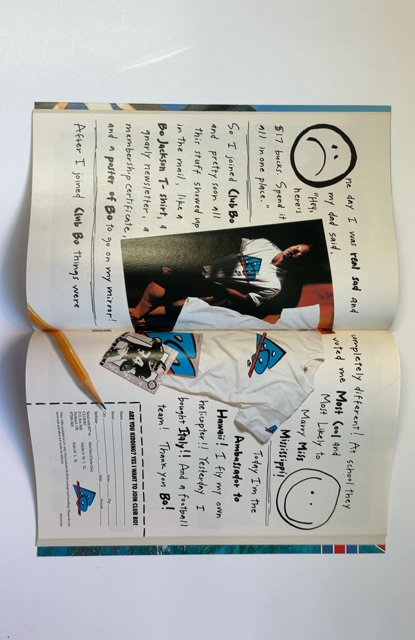 ne day I was real sad and
my dad said,
"Hey,
here's
$17 bucks. Spend it
all in one place."
So I joined Club Bo
and pretty soon all
this stuff showed up
in the mail, like a
Bo Jackson T-shirt, a
gnarly newsletter, a
membership certificate,
and a poster of Bo to go on my mirror!
After I joined Club Bo things were
completely different! At school they
voted me Most Cool and
Most Likely to
Marry Miss
Mississippi!
Today I'm the
Ambassador to
Hawaii! I fly my own
helicopter!! Yesterday I
bought Italy!! And a football
team! Thank you Bo!
ARE YOU KIDDING? YES I WANT TO JOIN CLUB BO!